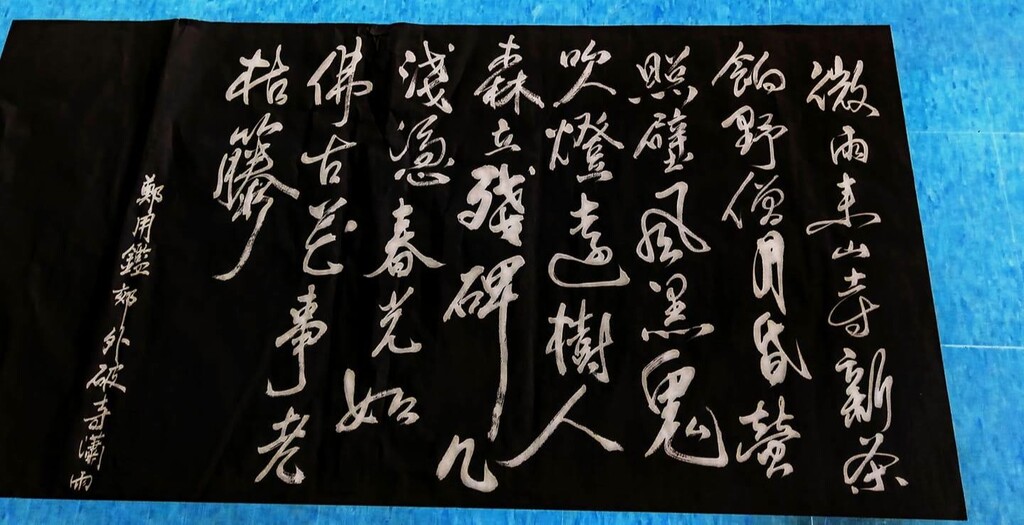 微雨来山寺新茶
餉野僧月昏螢
照壁風黑鬼
吹燈遠樹人
森立殘碑几
淺憑春光如
佛古花事老
枯藤
鄭用鑑郊外破寺瀟雨